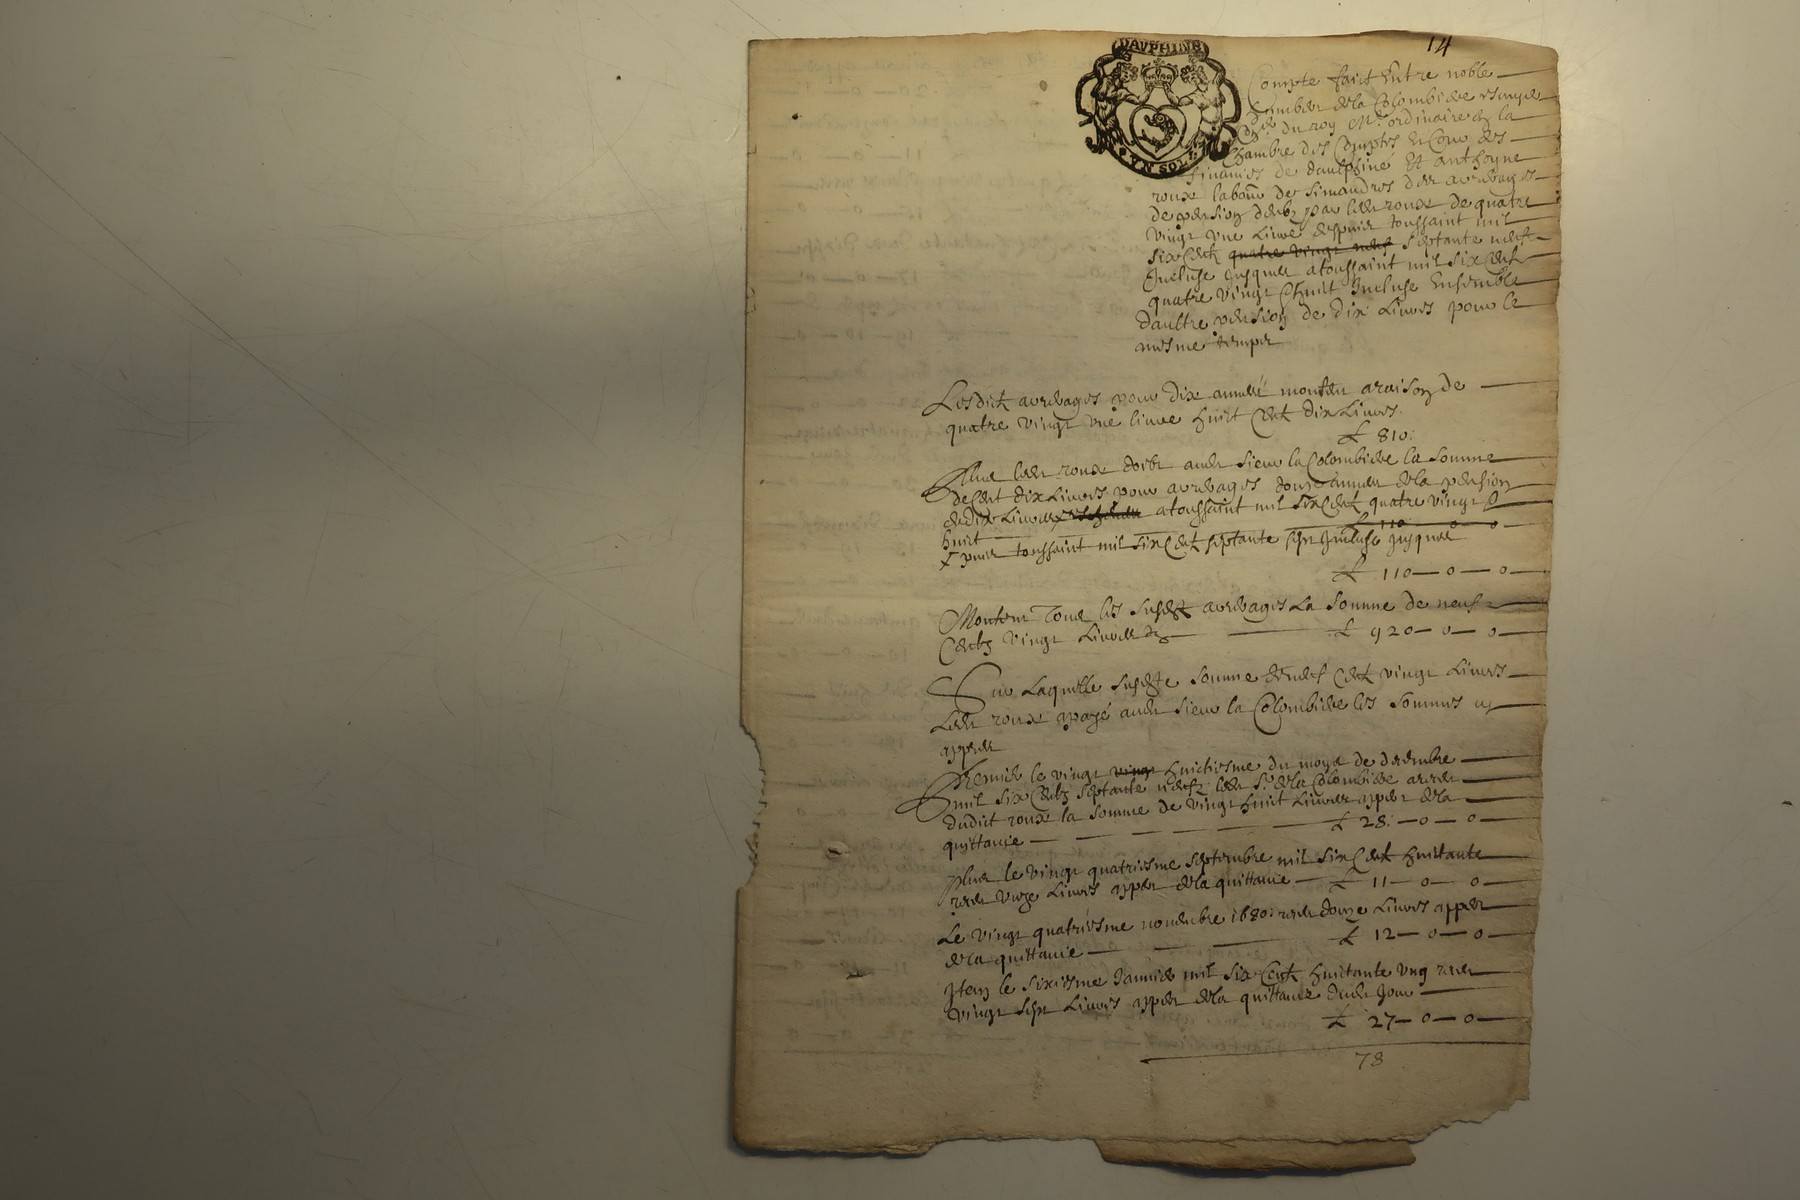 14
DAUPHINE
VN SOL
Compte faict Entre noble
de la Colombiere
du roy Mr. ordinaire en la
Chambre des Comptes Et Cour des
finances de dauphiné Et anthoyne
roux labour de simandres des arrerages
de pension deubz par ledit roux de quatre
vingt une Livre despuis toussaint mil
six Cent quatre vingt neuf septante neuf
Incluse jusques a toussaint mil six Cent
quatre vingt Et huit Incluse Ensemble
daultre pension de dix Livres pour le
mesme temps
Lesdict arrerages pour dix année monten a raison de
quatre vingt une livre huict Cent dix Livres
£ 810:
Plus ledit roux doibt audit sieur la Colombiere la somme
de Cent dix Livres pour arrerages donze années de la pension
de dix Livres a toussaint mil six Cent quatre vingt
huict £ 110 — 0 — 0
puis toussaint mil six Cent septante sept Incluse jusques
£ 110 — 0 — 0
Montent Tous les susdit arrerages La somme de neuf
Centz vingt Livres £ 920 — 0 — 0
Sur Laquelle susdite somme de neuf Cent vingt Livres
Ledit roux payé audit sieur la Colombiere les sommes cy
appres
Premier le vingt vingt huictiesme du moys de decembre
mil six Centz septante neuf ledit Sr. de la Colombiere a receu
dudict roux la somme de vingt huit Livres appert de la
quittance — £ 28: — 0 — 0
Plus le vingt quatriesme septembre mil six Cent huictante
receu unze Livres appert de la quittance — £ 11 — 0 — 0
Le vingt quatriesme novembre 1680: receu douze Livres appert
de la quittance — £ 12 — 0 — 0
Item le sixiesme Janvier mil six Cent huictante ung receu
vingt sept Livres appert de la quittance dudit jour
£ 27 — 0 — 0
78